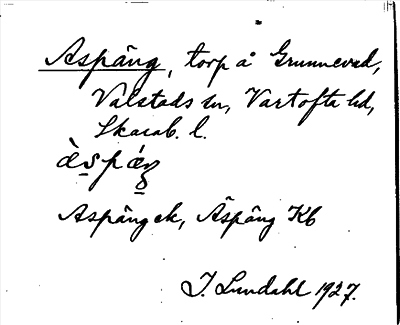 Aspäng, torp å Grunnevad,
Valstads sn, Vartofta hd,
Skarab. l.
às̱pǽŋ̱
Aspängek, Äspäng Kb
I. Lundahl 1927.